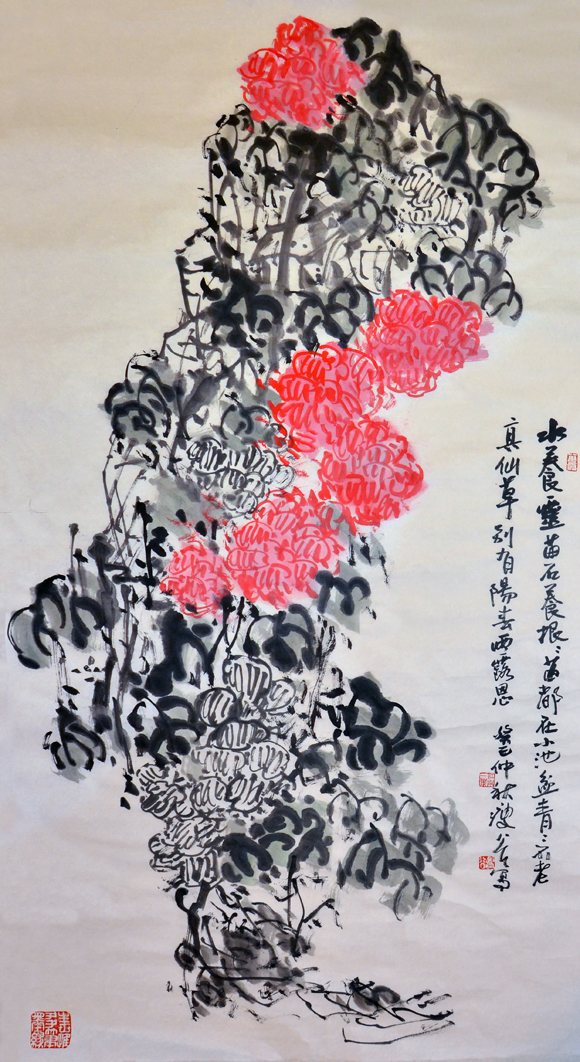 水養靈苗石養根〻苗都在小池盆青〻不老
真仙草別有陽春雨露恩 癸巳仲秋瘦公寫